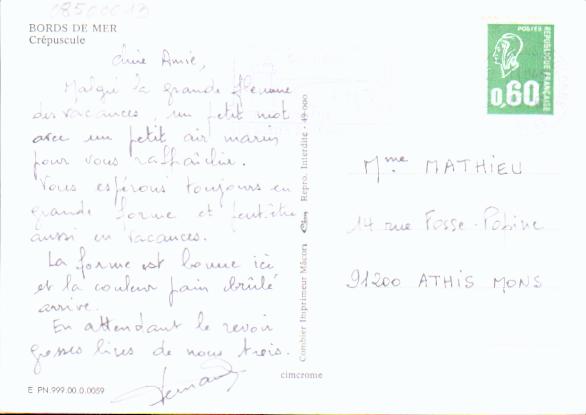 08500013
BORDS DE MER
Crépuscule
Chère Amie,
Malgré la grande flemme
des vacances, un petit mot
avec un petit air marin
pour vous raffraîchir.
Vous espérons toujours en
grande forme et peut.être
aussi en vacances.
La forme est bonne ici
et la couleur pain brûlé
arrive.
En attendant le revoir
grosses bises de nous trois.
E PN.999.00.0.0059
cimcrome
Combier Imprimeur Mâcon Cim Repro. Interdite - 49-000
POSTES
REPUBLIQUE FRANÇAISE
0,60
Mme MATHIEU
14 rue Fosse-
91200 ATHIS MONS